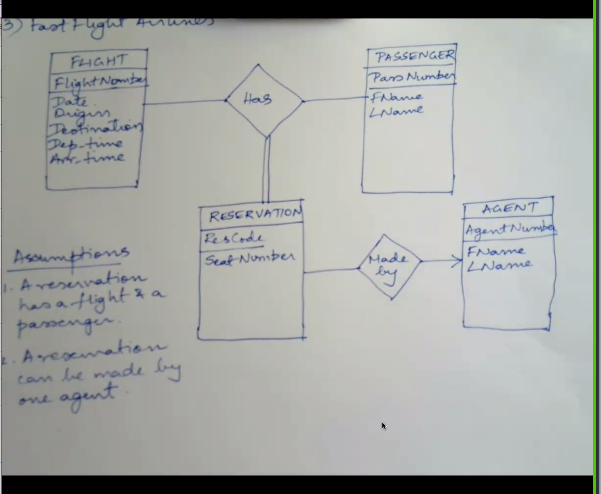 3) Fast Flight Airlines
FLIGHT
FlightNumber
Date
Origin
Destination
Dep-time
Arr-time
Has
PASSENGER
PassNumber
FName
LName
RESERVATION
ResCode
SeatNumber
Made
by
AGENT
AgentNumber
FName
LName
Assumptions
1. A reservation
has a flight & a
passenger.
2. A reservation
can be made by
one agent.